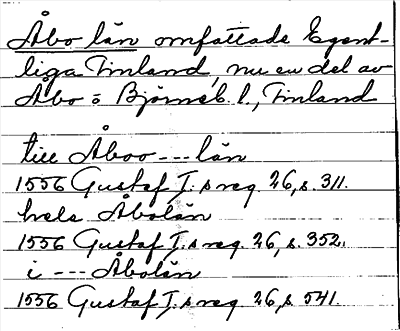 Åbo län omfattade Egent-
liga Finland, nu en del av
Åbo o Björneb. l., Finland
till Åboo --- län
1556 Gustaf I.s reg. 26, s. 311.
hela Åbolän
1556 Gustaf I.s reg. 26, s. 352.
i --- Åbolän
1556 Gustaf I.s reg. 26, s. 541.